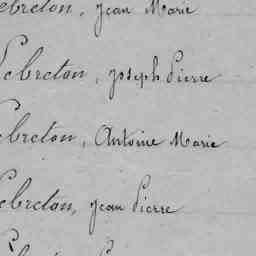 Lebreton, Jean Marie
Lebreton, Joseph Pierre
Lebreton, Antoine Marie
Lebreton, Jean Pierre